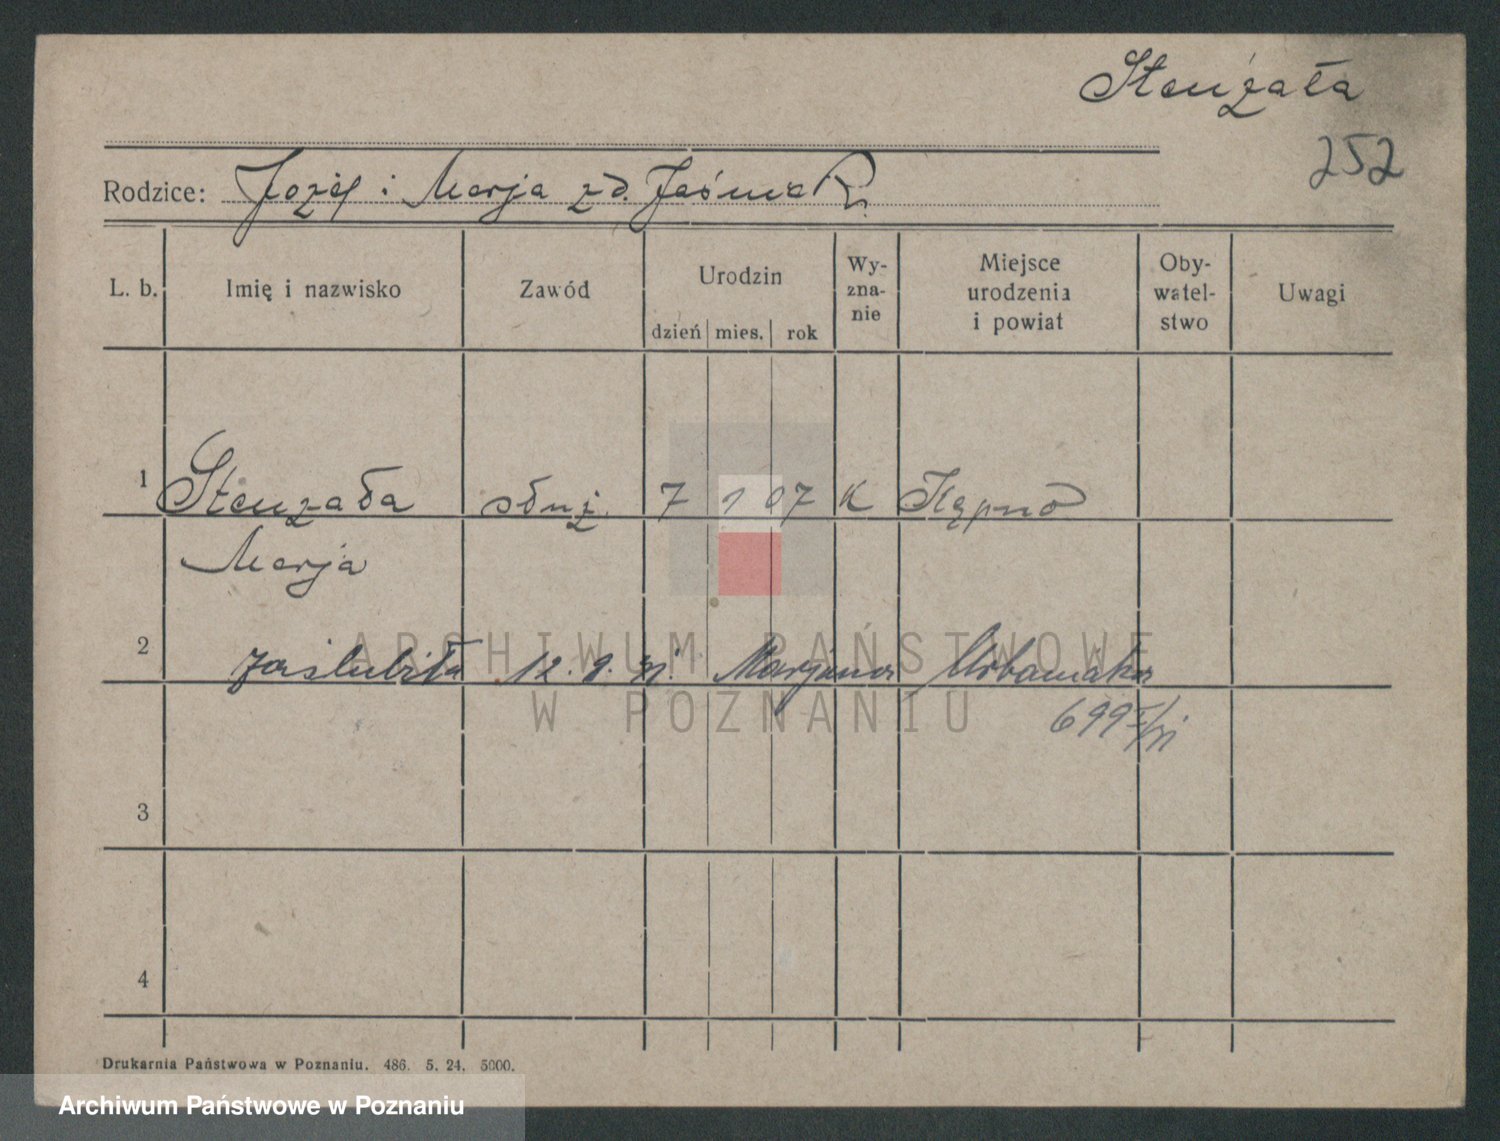 Stenzała
252
Rodzice: Józef i Marja zd. Jaśniak
L. b. Imię i nazwisko Zawód Urodzin dzień mies. rok Wy-zna-nie Miejsce urodzenia i powiat Oby-watel-stwo Uwagi
1 Stenzała służ. 7 1 07 K Kępno
Marja
2 zaślubiła 12.9.31. Marjana Urbaniaka
699
3
4
ARCHIWUM PAŃSTWOWE
W POZNANIU
Drukarnia Państwowa w Poznaniu. 486. 5. 24. 5000.
Archiwum Państwowe w Poznaniu